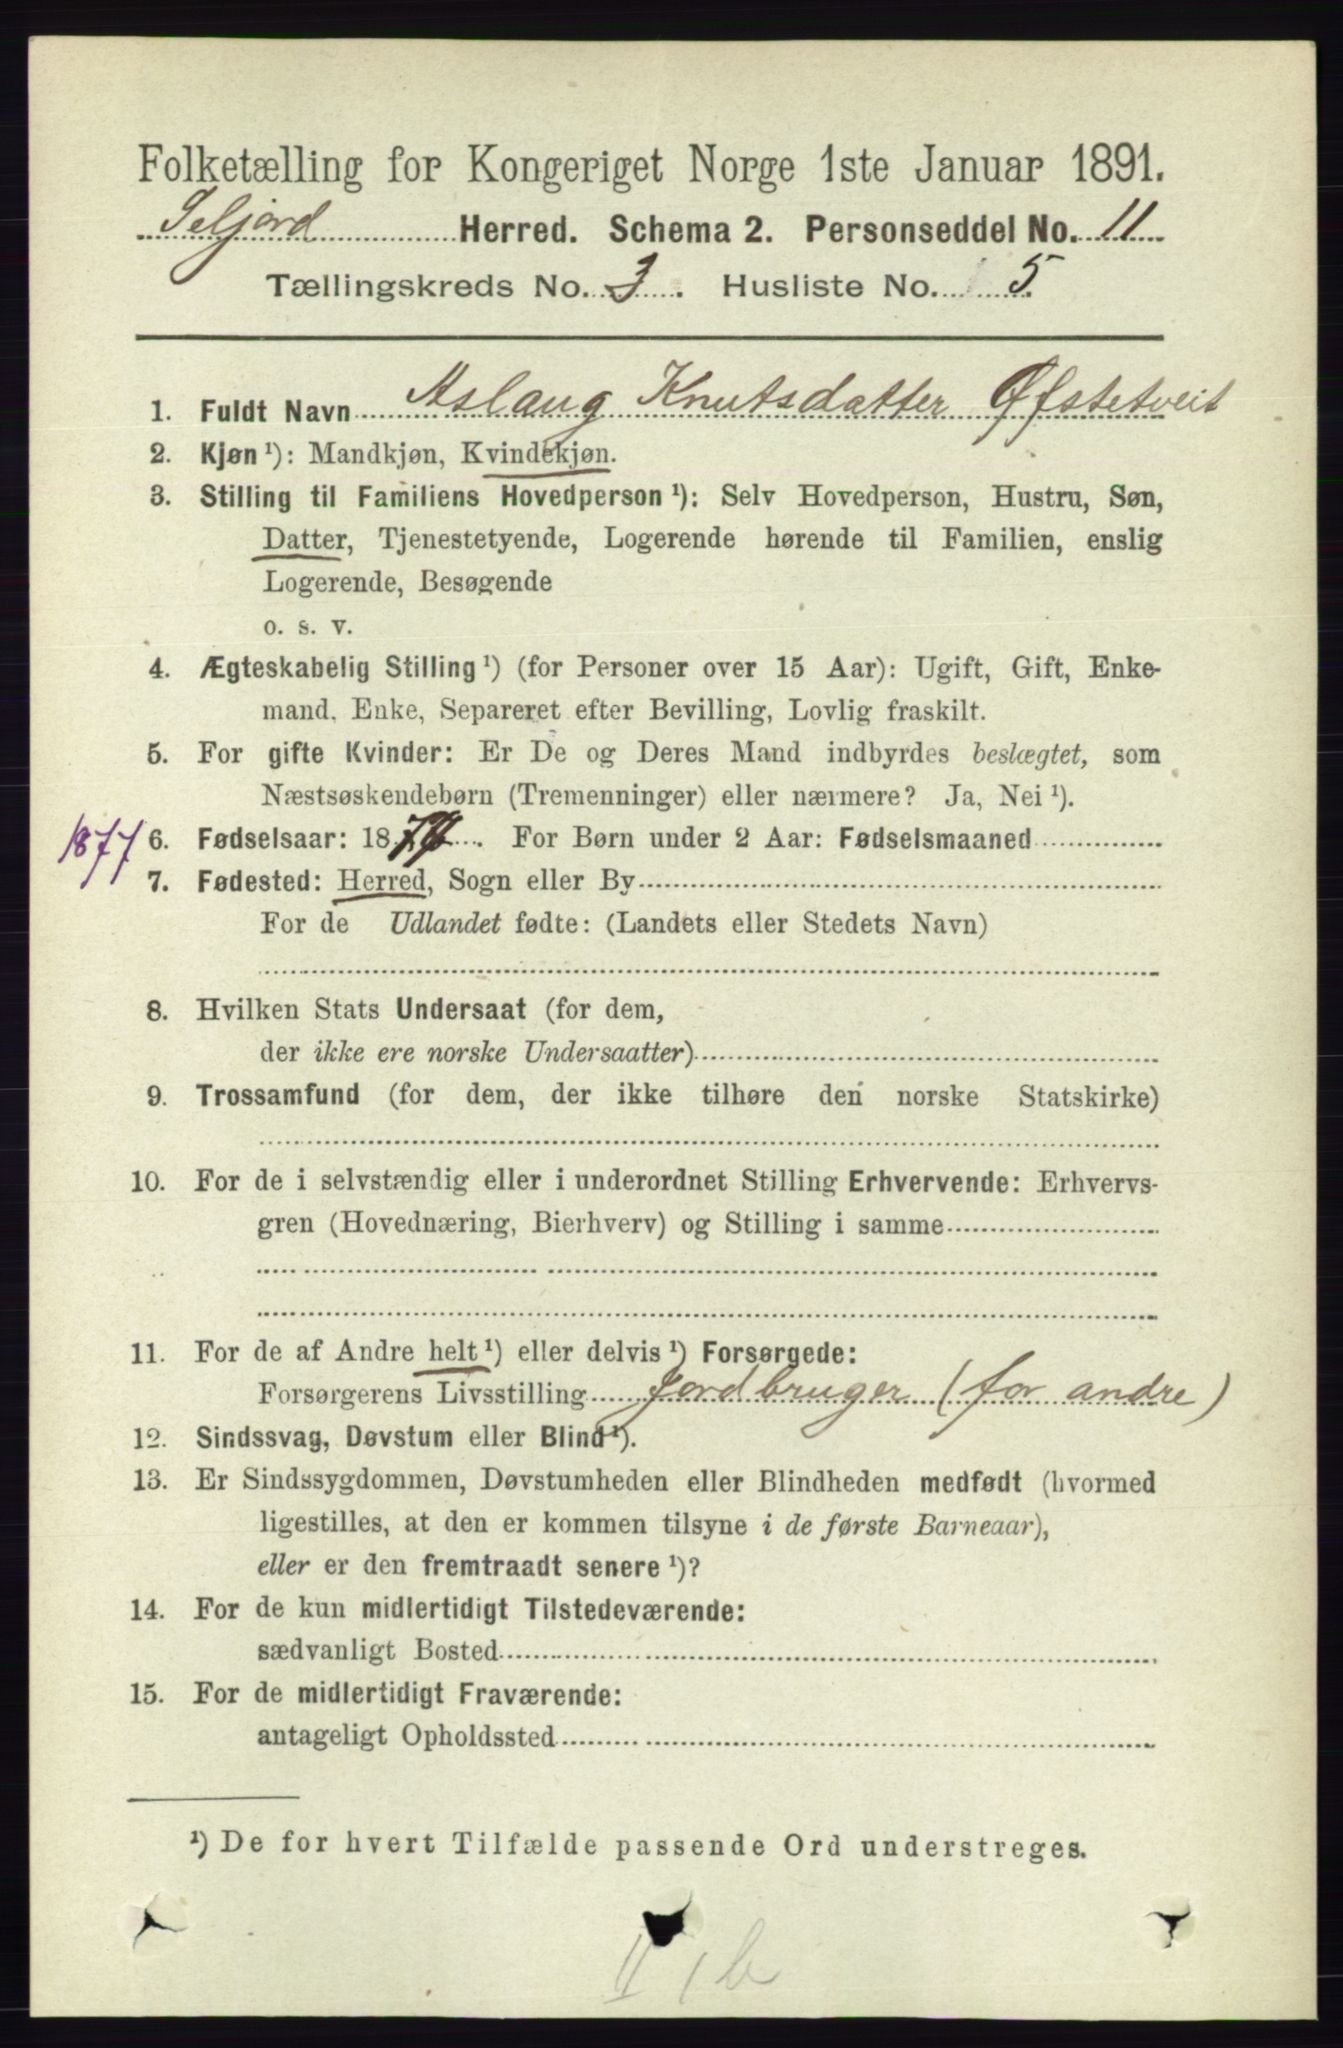 Folketælling for Kongeriget Norge 1ste Januar 1891.
Seljord Herred. Schema 2. Personseddel No. 11
Tællingskreds No. 3. Husliste No. 5.
1. Fuldt Navn Aslaug Knutsdatter Øfstetveit
2. Kjøn ¹): Mandkjøn, Kvindekjøn.
3. Stilling til Familiens Hovedperson ¹): Selv Hovedperson, Hustru, Søn,
Datter, Tjenestetyende, Logerende hørende til Familien, enslig
Logerende, Besøgende
o. s. v.
4. Ægteskabelig Stilling ¹) (for Personer over 15 Aar): Ugift, Gift, Enke-
mand, Enke, Separeret efter Bevilling, Lovlig fraskilt.
5. For gifte Kvinder: Er De og Deres Mand indbyrdes beslægtet, som
Næstsøskendebørn (Tremenninger) eller nærmere? Ja, Nei ¹).
1877 6. Fødselsaar: 1877. For Børn under 2 Aar: Fødselsmaaned
7. Fødested: Herred, Sogn eller By
For de Udlandet fødte: (Landets eller Stedets Navn)
8. Hvilken Stats Undersaat (for dem,
der ikke ere norske Undersaatter)
9. Trossamfund (for dem, der ikke tilhøre den norske Statskirke)
10. For de i selvstændig eller i underordnet Stilling Erhvervende: Erhvervs-
gren (Hovednæring, Bierhverv) og Stilling i samme
11. For de af Andre helt ¹) eller delvis ¹) Forsørgede:
Forsørgerens Livsstilling Jordbruger (for andre)
12. Sindssvag, Døvstum eller Blind ¹).
13. Er Sindssygdommen, Døvstumheden eller Blindheden medfødt (hvormed
ligestilles, at den er kommen tilsyne i de første Barneaar),
eller er den fremtraadt senere ¹)?
14. For de kun midlertidigt Tilstedeværende:
sædvanligt Bosted
15. For de midlertidigt Fraværende:
antageligt Opholdssted
¹) De for hvert Tilfælde passende Ord understreges.